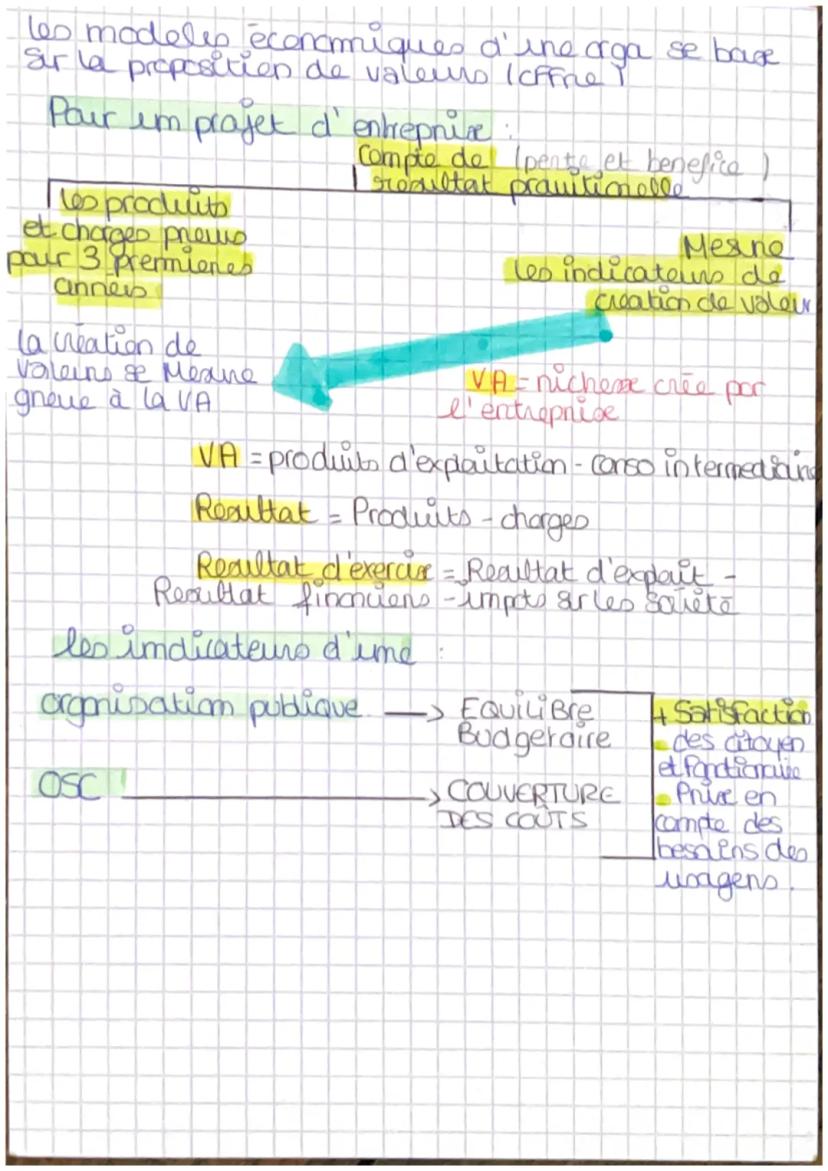 les modeles économiques d'une orga se base
sur la proposition de valeurs (offre)
Pour un projet d'entreprise :
Compte de (perte et benefice)
resultat previtionelle
les produits
et charges prevus
pour 3 premieres
années
Mesure
les indicateurs de
creation de valeur
la création de
valeurs se Mesure
greue à la VA
VA = richesse crée par
l'entreprise
VA = produits d'exploitation - conso intermediaire
Resultat = Produits - charges
Resultat d'exercise = Resultat d'exploit -
Resultat financiers - impots sur les société
les indicateurs d'une :
orgnisation publique → EQUILIBRE
BUDGETAIRE
OSC → COUVERTURE
DES COÛTS
+ Satisfaction
- des citoyen
et fonctionaire
- Prise en
compte des
besoins des
usagers.